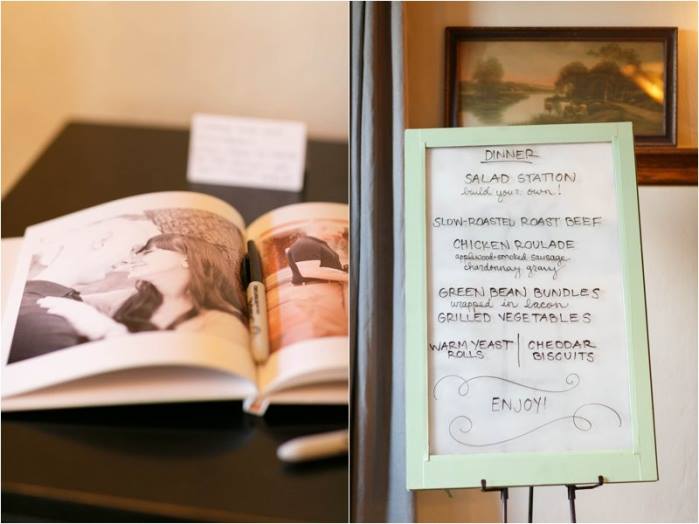 DINNER
SALAD STATION
build your own!
SLOW-ROASTED ROAST BEEF
CHICKEN ROULADE
applewood-smoked sausage
chardonnay gravy
GREEN BEAN BUNDLES
wrapped in bacon
GRILLED VEGETABLES
WARM YEAST
ROLLS
CHEDDAR
BISCUITS
ENJOY!